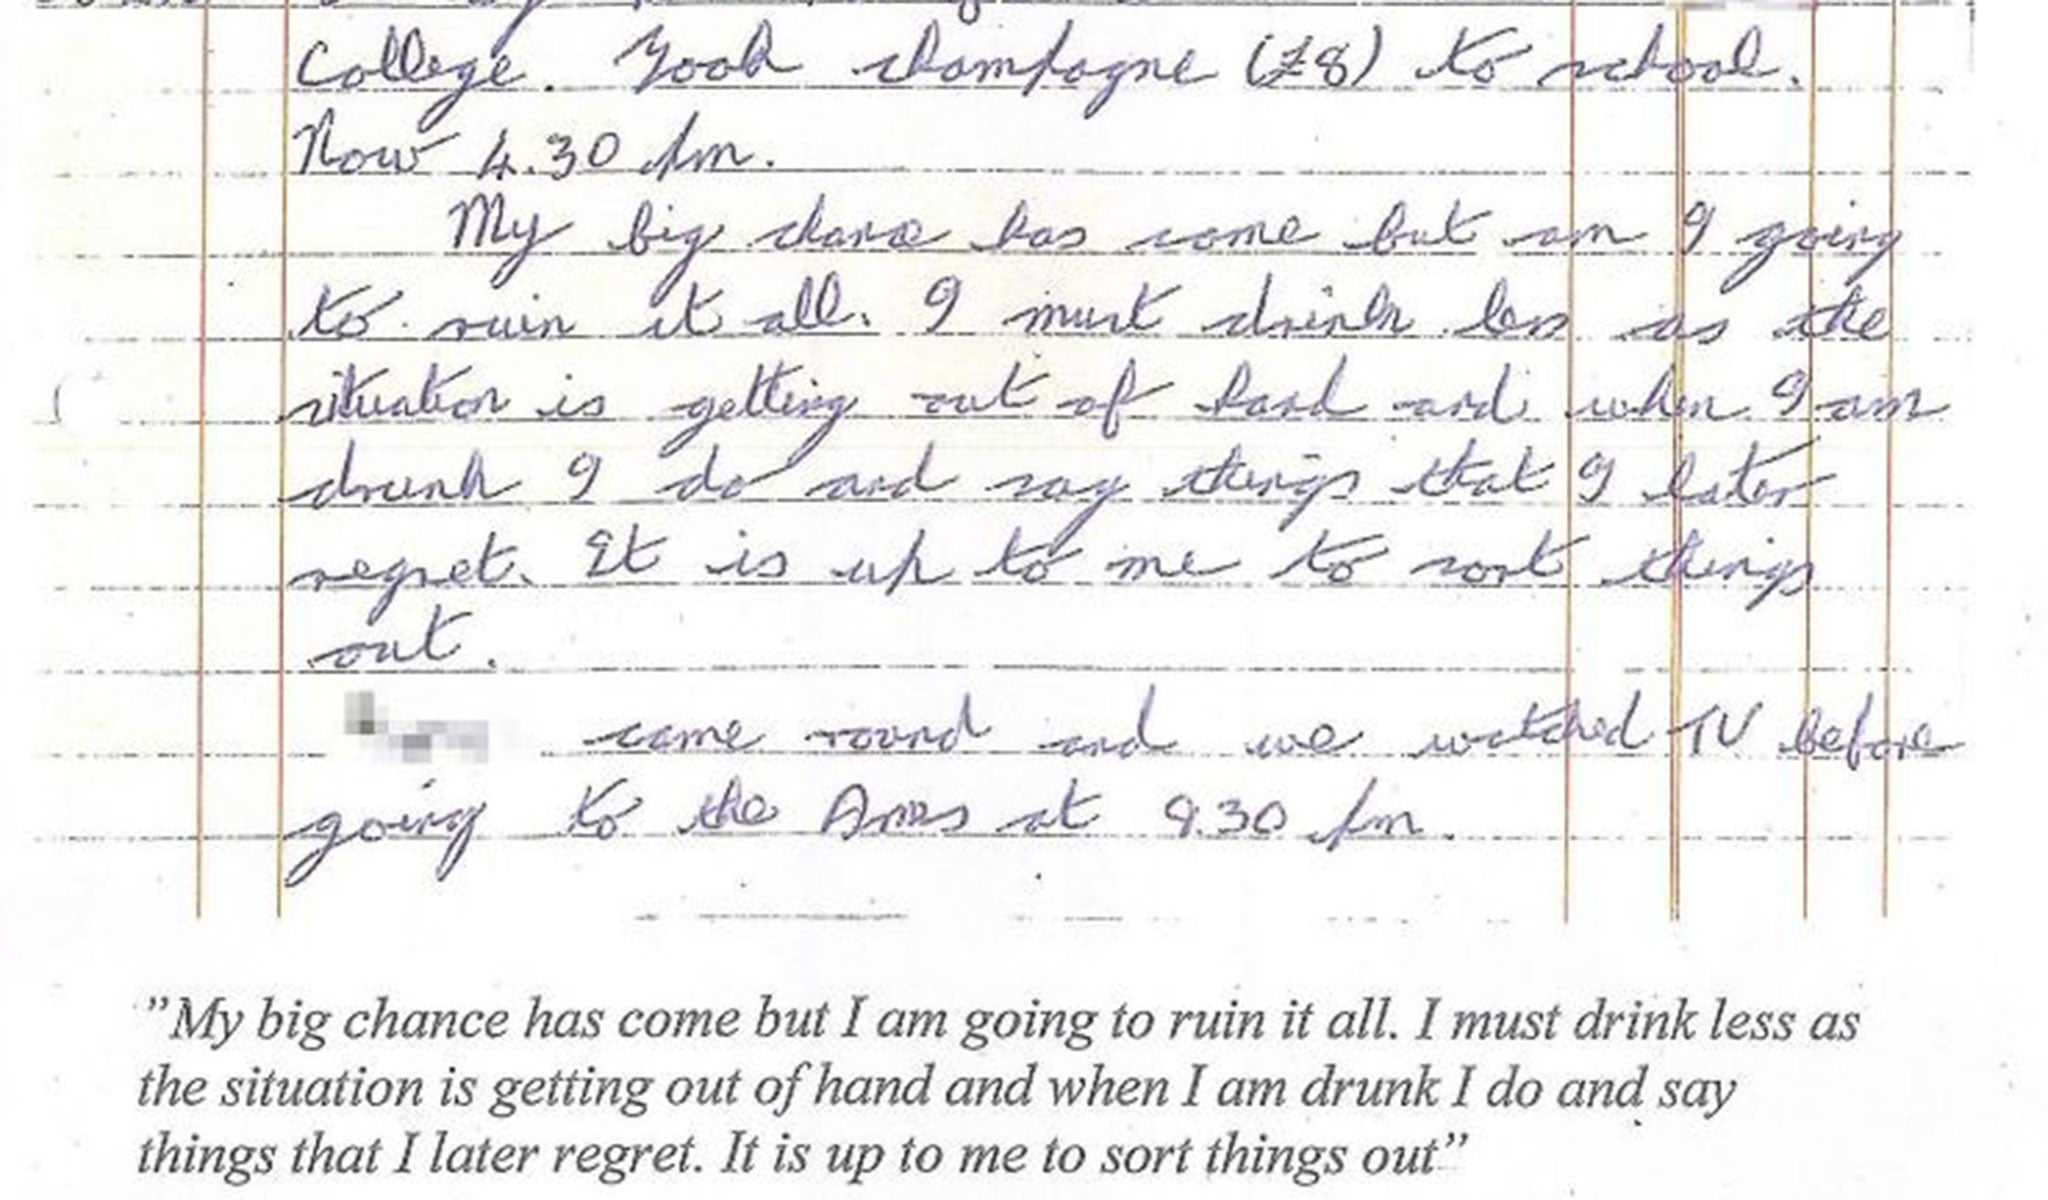 College. Took champagne (£8) to school.
Now 4.30 pm.
My big chance has come but am I going
to ruin it all. I must drink less as the
situation is getting out of hand and when I am
drunk I do and say things that I later
regret. It is up to me to sort things
out.
came round and we watched TV before
going to the Arms at 9.30 pm.
"My big chance has come but I am going to ruin it all. I must drink less as
the situation is getting out of hand and when I am drunk I do and say
things that I later regret. It is up to me to sort things out"